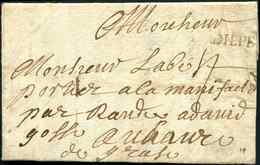 Monsieur
DIEPE
Monsieur Labé
portier a la manufact
par Rande adavid
gosse auhaure
de grase